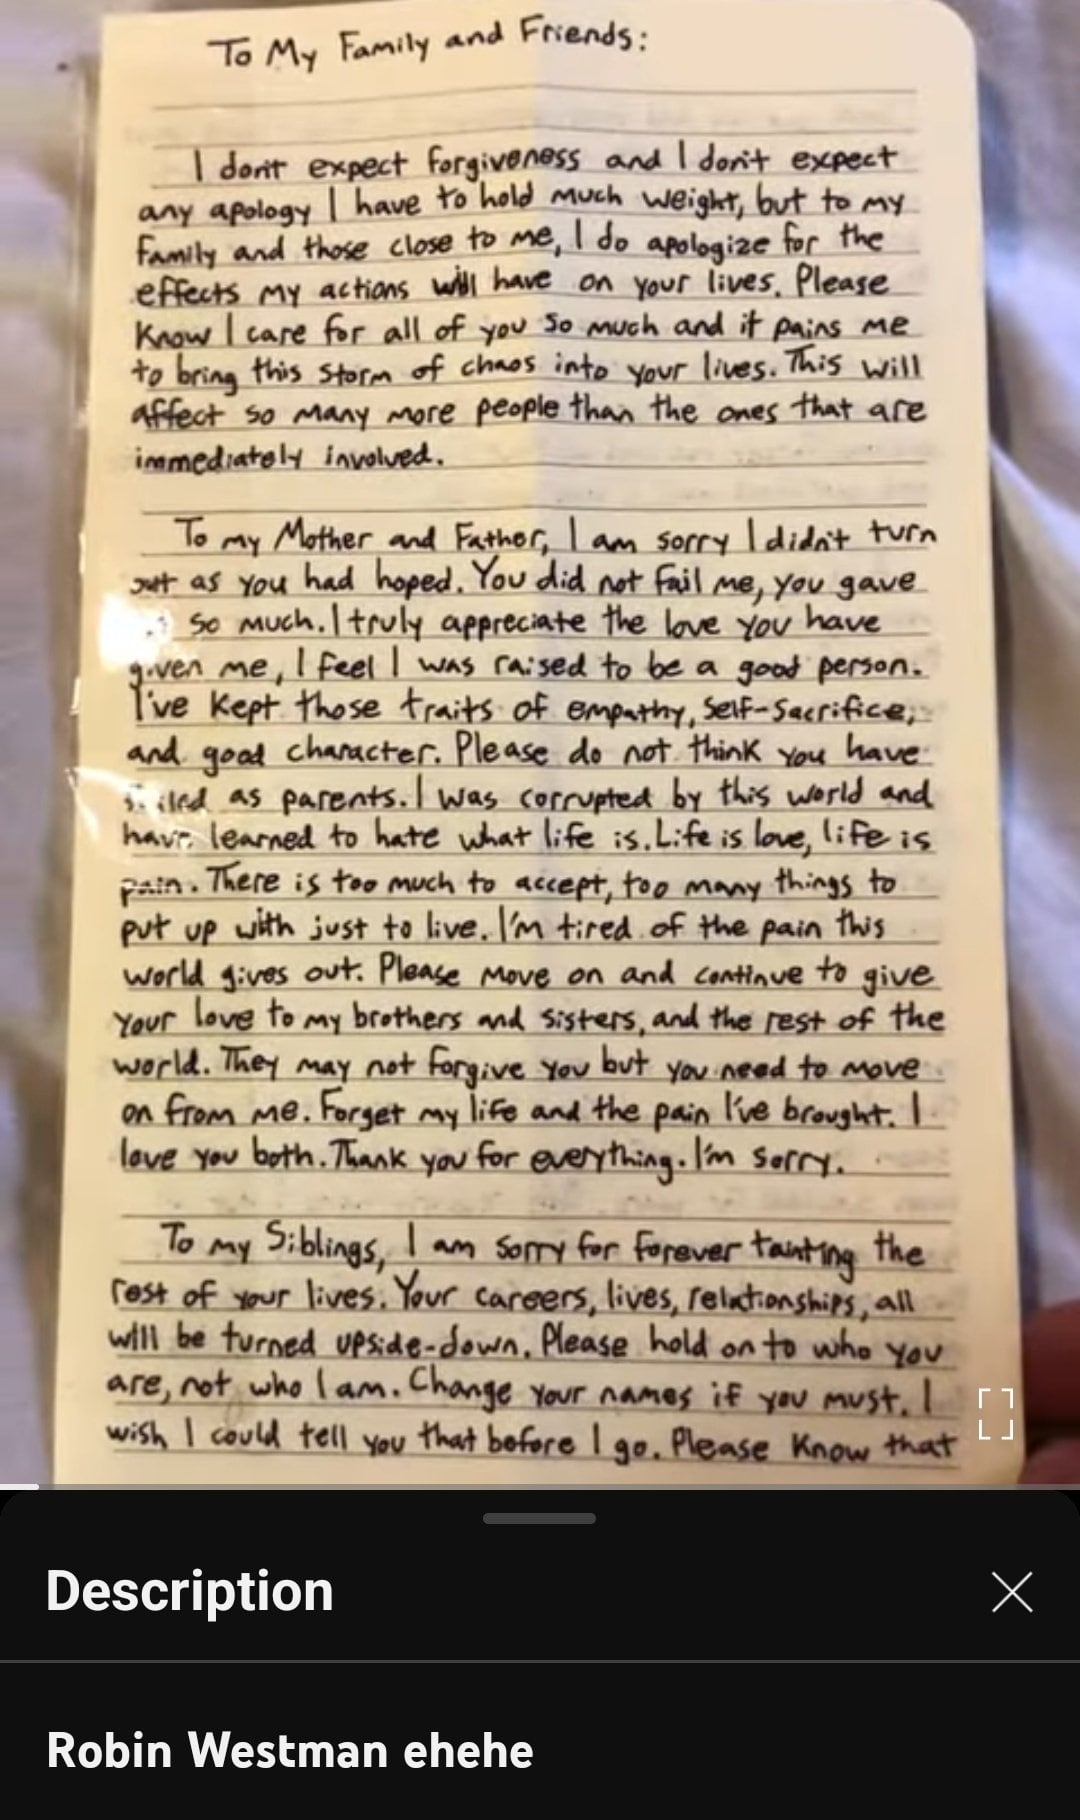 To My Family and Friends:
I don't expect forgiveness and I don't expect
any apology I have to hold much weight, but to my
family and those close to me, I do apologize for the
effects my actions will have on your lives. Please
know I care for all of you so much and it pains me
to bring this storm of chaos into your lives. This will
affect so many more people than the ones that are
immediately involved.
To my Mother and Father, I am sorry I didn't turn
out as you had hoped. You did not fail me, you gave
so much. I truly appreciate the love you have
given me, I feel I was raised to be a good person.
I've kept those traits of empathy, self-sacrifice,
and good character. Please do not think you have
failed as parents. I was corrupted by this world and
have learned to hate what life is. Life is love, life is
pain. There is too much to accept, too many things to
put up with just to live. I'm tired of the pain this
world gives out. Please move on and continue to give
your love to my brothers and sisters, and the rest of the
world. They may not forgive you but you need to move
on from me. Forget my life and the pain I've brought. I
love you both. Thank you for everything. I'm sorry.
To my Siblings, I am sorry for forever tainting the
rest of your lives. Your careers, lives, relationships, all
will be turned upside-down. Please hold on to who you
are, not who I am. Change your names if you must. I
wish I could tell you that before I go. Please know that
Description
Robin Westman ehehe